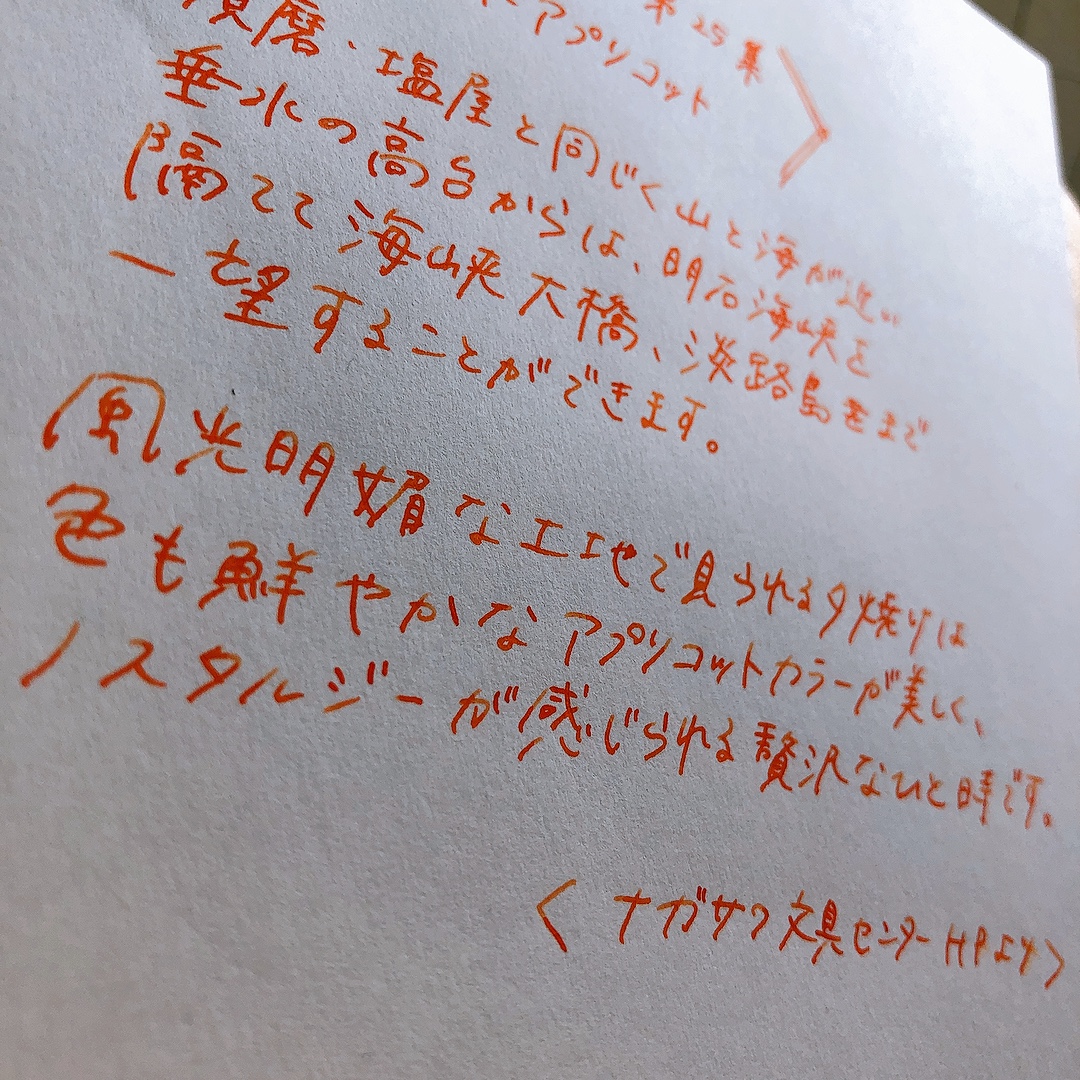 第25集
アプリコット
須磨・塩屋と同じく山と海が近い
垂水の高台からは、明石海峡を
隔てて海峡大橋、淡路島をまで
一望することができます。
風光明媚な土地で見られる夕焼けは
色も鮮やかなアプリコットカラーが美しく、
ノスタルジーが感じられる贅沢なひと時です。
〈ナガサワ文具センターHPより〉